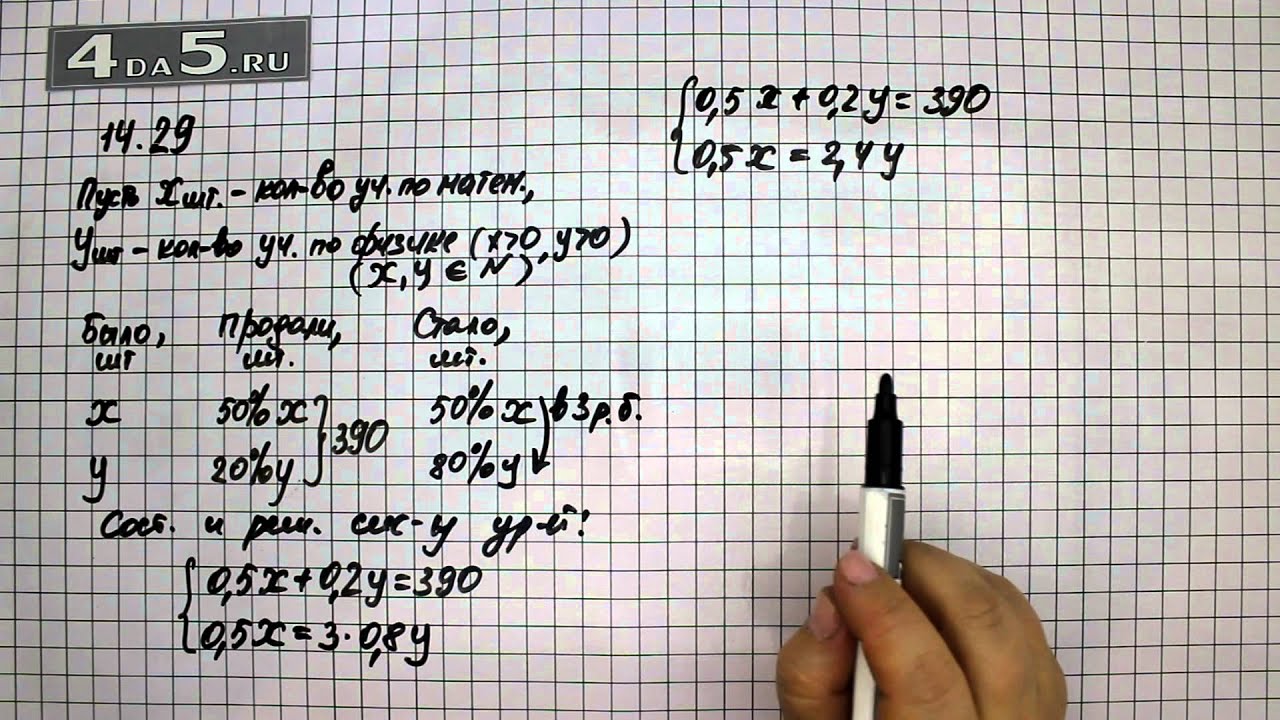 4DA5.RU
14.29
Пусть x шт. - кол-во уч. по матем.,
y шт - кол-во уч. по физике (x>0, y>0)
(x, y ∈ N)
Было, Продали, Стало,
шт шт. шт.
x 50% x } 390 50% x в 3 р. б.
y 20% y 80% y
Сост. и реш. сис-у ур-й:
{ 0,5x + 0,2y = 390
0,5x = 3 · 0,8y
{ 0,5x + 0,2y = 390
0,5x = 2,4y